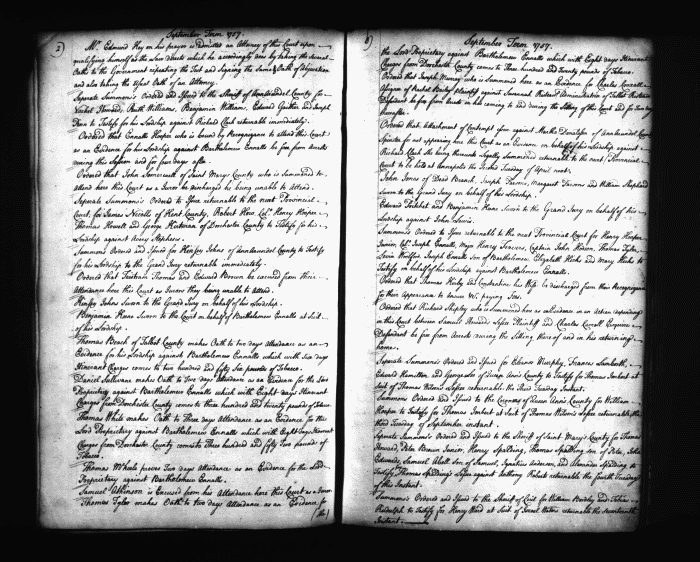 2)
September Term 1757.
Mr. Edmund Key on his prayer is Admitted an Attorney of this Court upon
qualifying himself as the Law directs which he accordingly does by taking the several
Oaths to the Government repeating the Test and Signing the same & Oath of Abjuration
and also taking the usual Oath of an Attorney.
Seperate Summons's Ordered and Issued to the Sheriff of Annarundel County for
Howard, Ruth Williams, Benjamin Williams, Edward Gaither and Joseph
to Testifie for his Lordship against Richard returnable immediately.
Ordered that Ennalls Hooper who is bound by Recognizance to attend this Court
as an Evidence for his Lordship against Bartholomew Ennalls be free from arrests
during this Session and for four days after.
Ordered that John Somervell of Saint Marys County who is Summoned to
attend here this Court as a Juror be discharged he being unable to attend.
Seperate Summons Ordered to Issue returnable the next Provincial
Court for James Nicolls of Kent County, Robert How, Col. Henry Hooper
Thomas Howell and George Hickman of Dorchester County to Testifie for his
Lordship against Henry Stephens.
Summons Ordered and Issued for Kensey Johns of Annarundel County to Testifie
for his Lordship to the Grand Jury returnable immediately.
Ordered that Tristram Thomas and Edward Brown be excused from their
Attendance here this Court as Jurors they being unable to attend.
Kensey Johns Sworn to the Grand Jury on behalf of his Lordship.
Benjamin Hane Sworn to the Court on behalf of Bartholomew Ennalls at suit
of his Lordship.
Thomas Beach of Talbot County makes Oath to two days attendance as an
Evidence for his Lordship against Bartholomew Ennalls which with Six days
Itinerant Charges comes to two hundred and fifty Six pounds of Tobacco.
Daniel Sullivane makes Oath to two days attendance as an Evidence for the Lord
Proprietary against Bartholomew Ennalls which with Eight days Itinerant
Charges from Dorchester County comes to three hundred and twenty pounds of Tobacco
Thomas White makes Oath to Three days Attendance as an Evidence for the
Lord Proprietary against Bartholomew Ennalls which with Eight days Itinerant
Charges from Dorchester County comes to Three hundred and fifty two pounds of
Tobacco.
Thomas Wheele proves Two days Attendance as an Evidence for the Lord
Proprietary against Bartholomew Ennalls.
Samuel Atkinson is Excused from his Attendance here this Court as a Juror
Thomas Tyler makes Oath to two days Attendance as an Evidence for
the
September Term 1757.
the Lord Proprietary against Bartholomew Ennalls which with Eight days Itinerant
Charges from Dorchester County comes to Three hundred and Twenty pounds of Tobacco.
Ordered that Joseph Murray who is Summoned here as an Evidence for Charles Connell
of Rachel plaintiff against Susannah Administratrix of
Defendant be free from arrests in his coming to and during the Sitting of this Court and for two days
thereafter.
Ordered that Attachment of Contempt Issue against Martha Donaldson of Annarundel County
Spinster for not appearing here this Court as an Evidence on behalf of his Lordship against
Richard she being thereunto legally Summoned returnable to the next Provincial
Court to be held at Annapolis the Second Tuesday of April next.
John Jones of Dead Branch, Joseph Parsons, Margaret Parsons and William Shephard
Sworn to the Grand Jury on behalf of his Lordship.
Edward and Benjamin Hane Sworn to the Grand Jury on behalf of his
Lordship against John Lewis.
Summons's Ordered to Issue returnable to the next Provincial Court for Henry Hooper
Junior, Col. Joseph Ennalls, Major Henry Travers, Captain John Hodson, Thomas Tyler,
Levin Joseph Ennalls Son of Bartholomew, Elizabeth Hicks and Mary Hicks to
Testifie on behalf of his Lordship against Bartholomew Ennalls.
Ordered that Thomas Kirby and his Wife be discharged from their Recognizance
for their Appearance to answer paying Fees.
Ordered that Richard Shipley who is Summoned here as an Evidence in an Action depending
in this Court between Samuel Howards Lessee Plaintiff and Charles Carroll Esquire
Defendant be free from arrests during the Sitting thereof and in his returning
home.
Seperate Summons's Ordered and Issued for Edmund Murphy, Francis
Edward Hamilton and George of Queen Anns County to Testifie for Thomas Imbert at
suit of Thomas Wilsons Lessee returnable the third Tuesday Instant.
Summons Ordered and Issued to the Coroners of Queen Anns County for William
Hooper to Testifie for Thomas Imbert at Suit of Thomas Wilson's Lessee returnable the
third Tuesday of September instant.
Seperate Summons Ordered and Issued to the Sheriff of Saint Mary's County for Thomas
Howard, Peter Brown Junior, Henry Spalding, Thomas Spalding son of Peter, John
Edwards, Samuel Abell Son of Samuel, Ignatius and Spalding to
Testifie Thomas Spalding's Lessee against Anthony returnable the fourth Tuesday
of this Instant.
Summons Ordered and Issued to the Sheriff of for William and Tobias
Rudulph to Testifie for Henry Ward at Suit of Israel Waters returnable the Seventeenth
Instant.